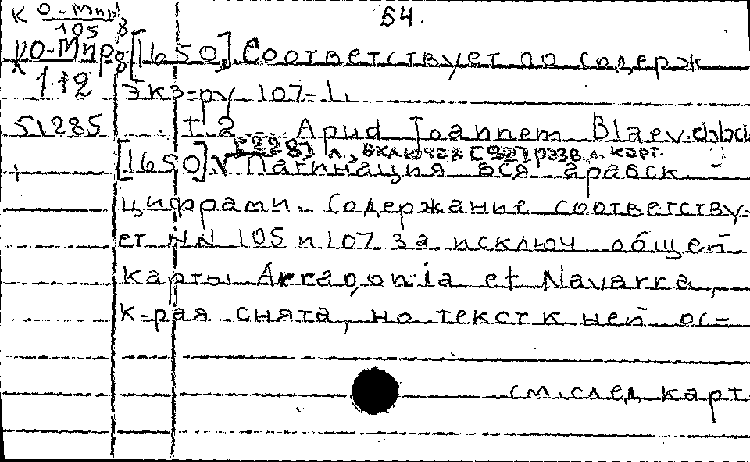 К О-Мир 54.
105 8
КО-Мир 8 [1650] Соответствует по содерж
112 Экз-ру 107-1.
51285 Т. 2 Apud Ioannem Blaev.
[228] л., включая [92] разв. л. карт.
[1650] V Пагинация вся арабск
цифрами. Содержание соответству-
ет NN 105 и 107 за исключ общей
карты Arragonia et Navarra,
к-рая снята, но текст к ней ос-
см. след карт